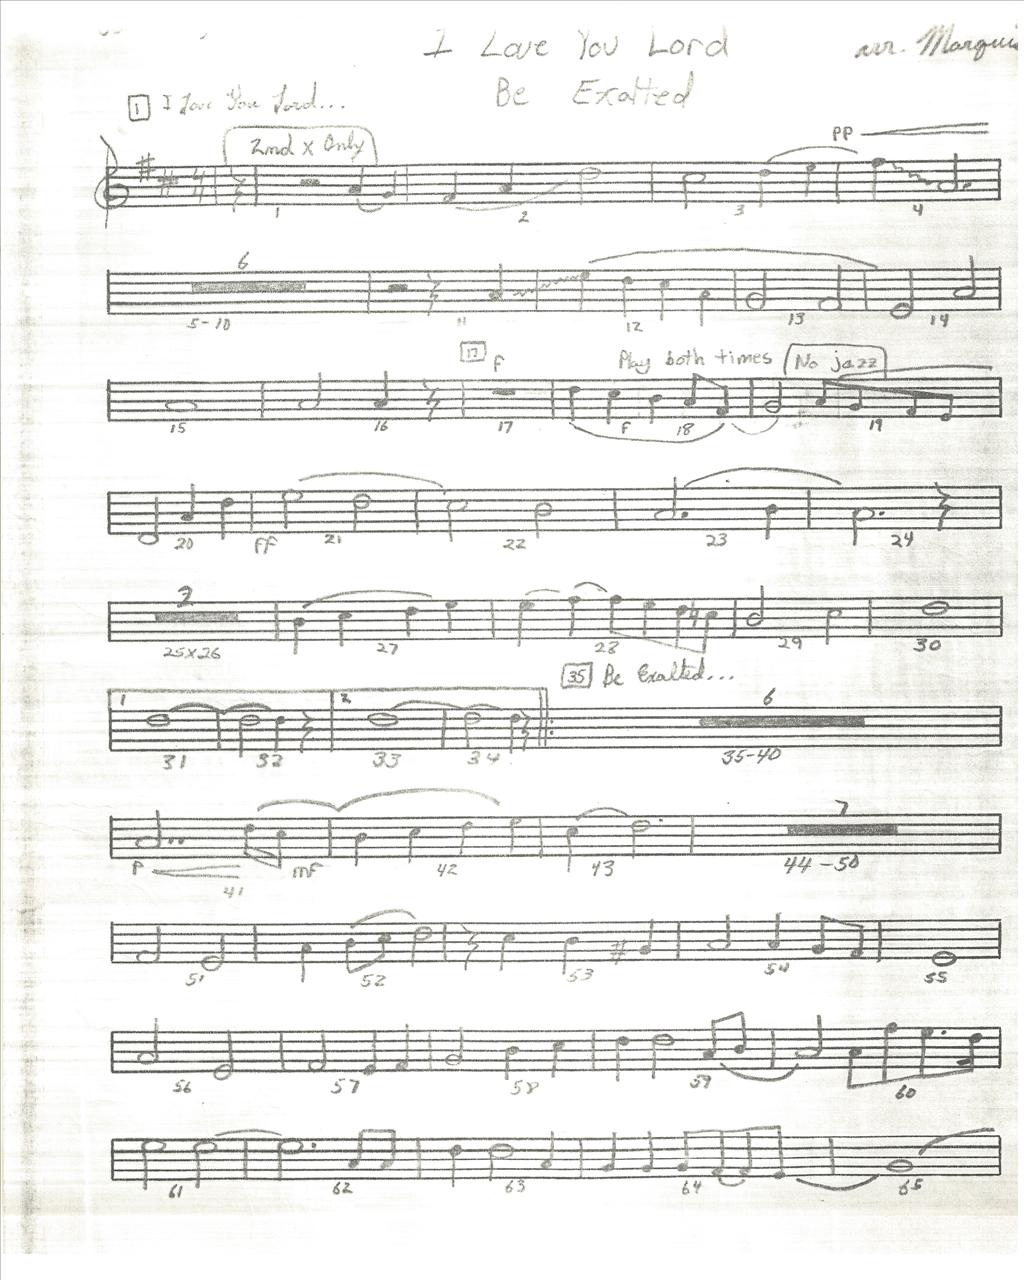 I Love You Lord
arr. Marquis
Be Exalted
1 I Love You Lord...
2nd x Only
pp
1 2 3 4
6
5-10 11 12 13 14
17 f Play both times No jazz
15 16 17 f 18 19
20 ff 21 22 23 24
2
25x26 27 28 29 30
35 Be Exalted...
1 2 6
31 32 33 34 35-40
7
p mf 42 43 44-50
41
51 52 53 54 55
56 57 58 59 60
61 62 63 64 65